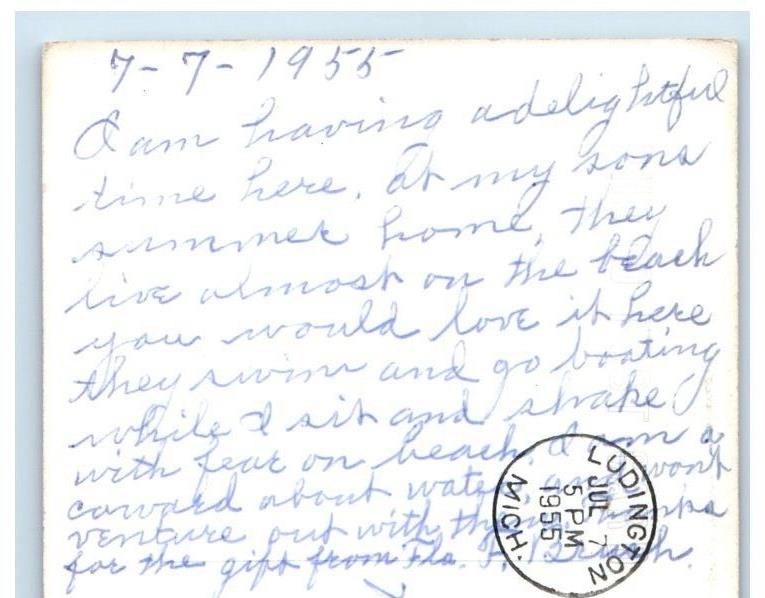 7-7-1955
I am having a delightful
time here. At my sons
summer home, they
live almost on the beach
you would love it here
they swim and go boating
while I sit and shake
with fear on beach. I am a
coward about water, and won't
venture out with them, thanks
for the gift from Fla.
LUDINGTON
JUL 7
5 PM
1955
MICH.